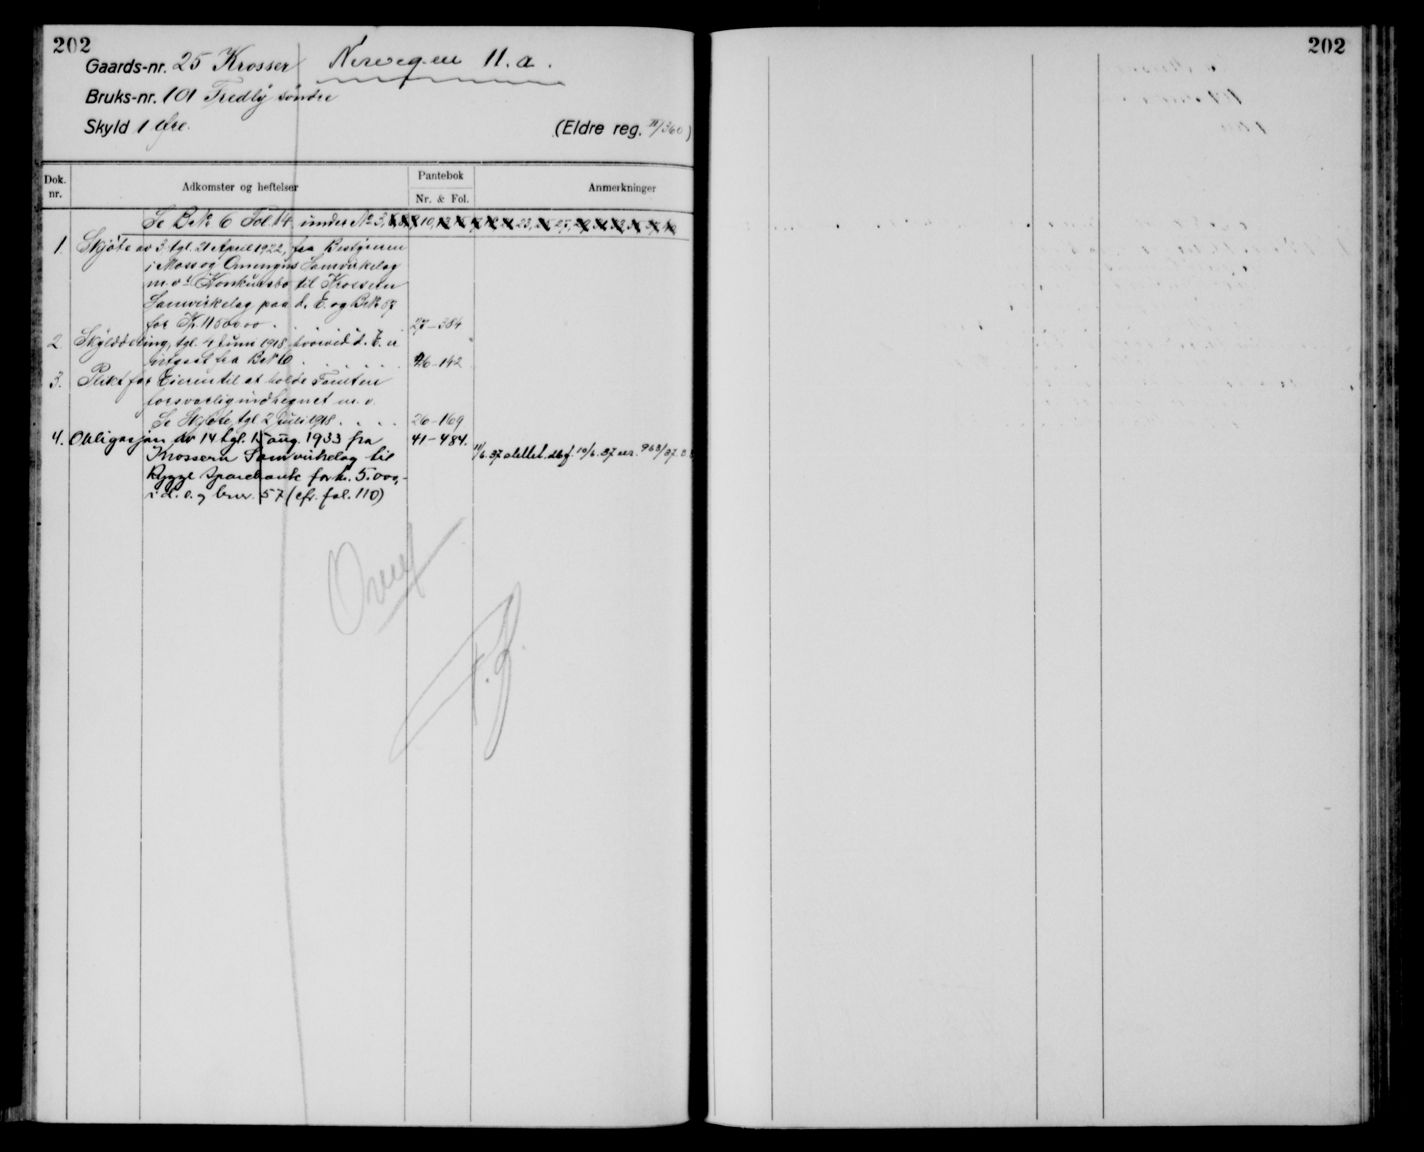 202
202
Gaards-nr. 25 Krosser Norvegen 11. a.
Bruks-nr. 101 Fredly söndre
Skyld 1 Øre. (Eldre reg. III/360)
Dok. nr.
Adkomster og heftelser
Pantebok
Nr. & Fol.
Anmerkninger
Se B.Nr. 6 Fol 14 under No 3,
1. Skjöte av 3. tgl. 21 April 1922, fra Bestyreren
i Moss og Omengns Samvirkelag
m.v. Konkursbo til Krosseren
Samvirkelag paa d. E. og B.Nr. 57
for Kr. 11500.00 . 27-384
2 Skylddeling, tgl. 4 Juni 1918 hvorved d. E. er
fra B.Nr. 6 . 26-142
3. Plikt for Eieren til at holde Tomten
forsvarlig indhegnet m. v.
Se Skjöte, tgl 2 Juli 1918 . . . . 26-169
4. Obligasjon av 14 tgl. 15 aug. 1933 fra 41-484.
Krossern Samvirkelag til
Rygge Sparebank for kr. 5.000,-
i d. e. og brnr. 57 (cfr. fol. 110)
11/6.37 slettet. dbgf. 10/6.37 nr. 963/37.